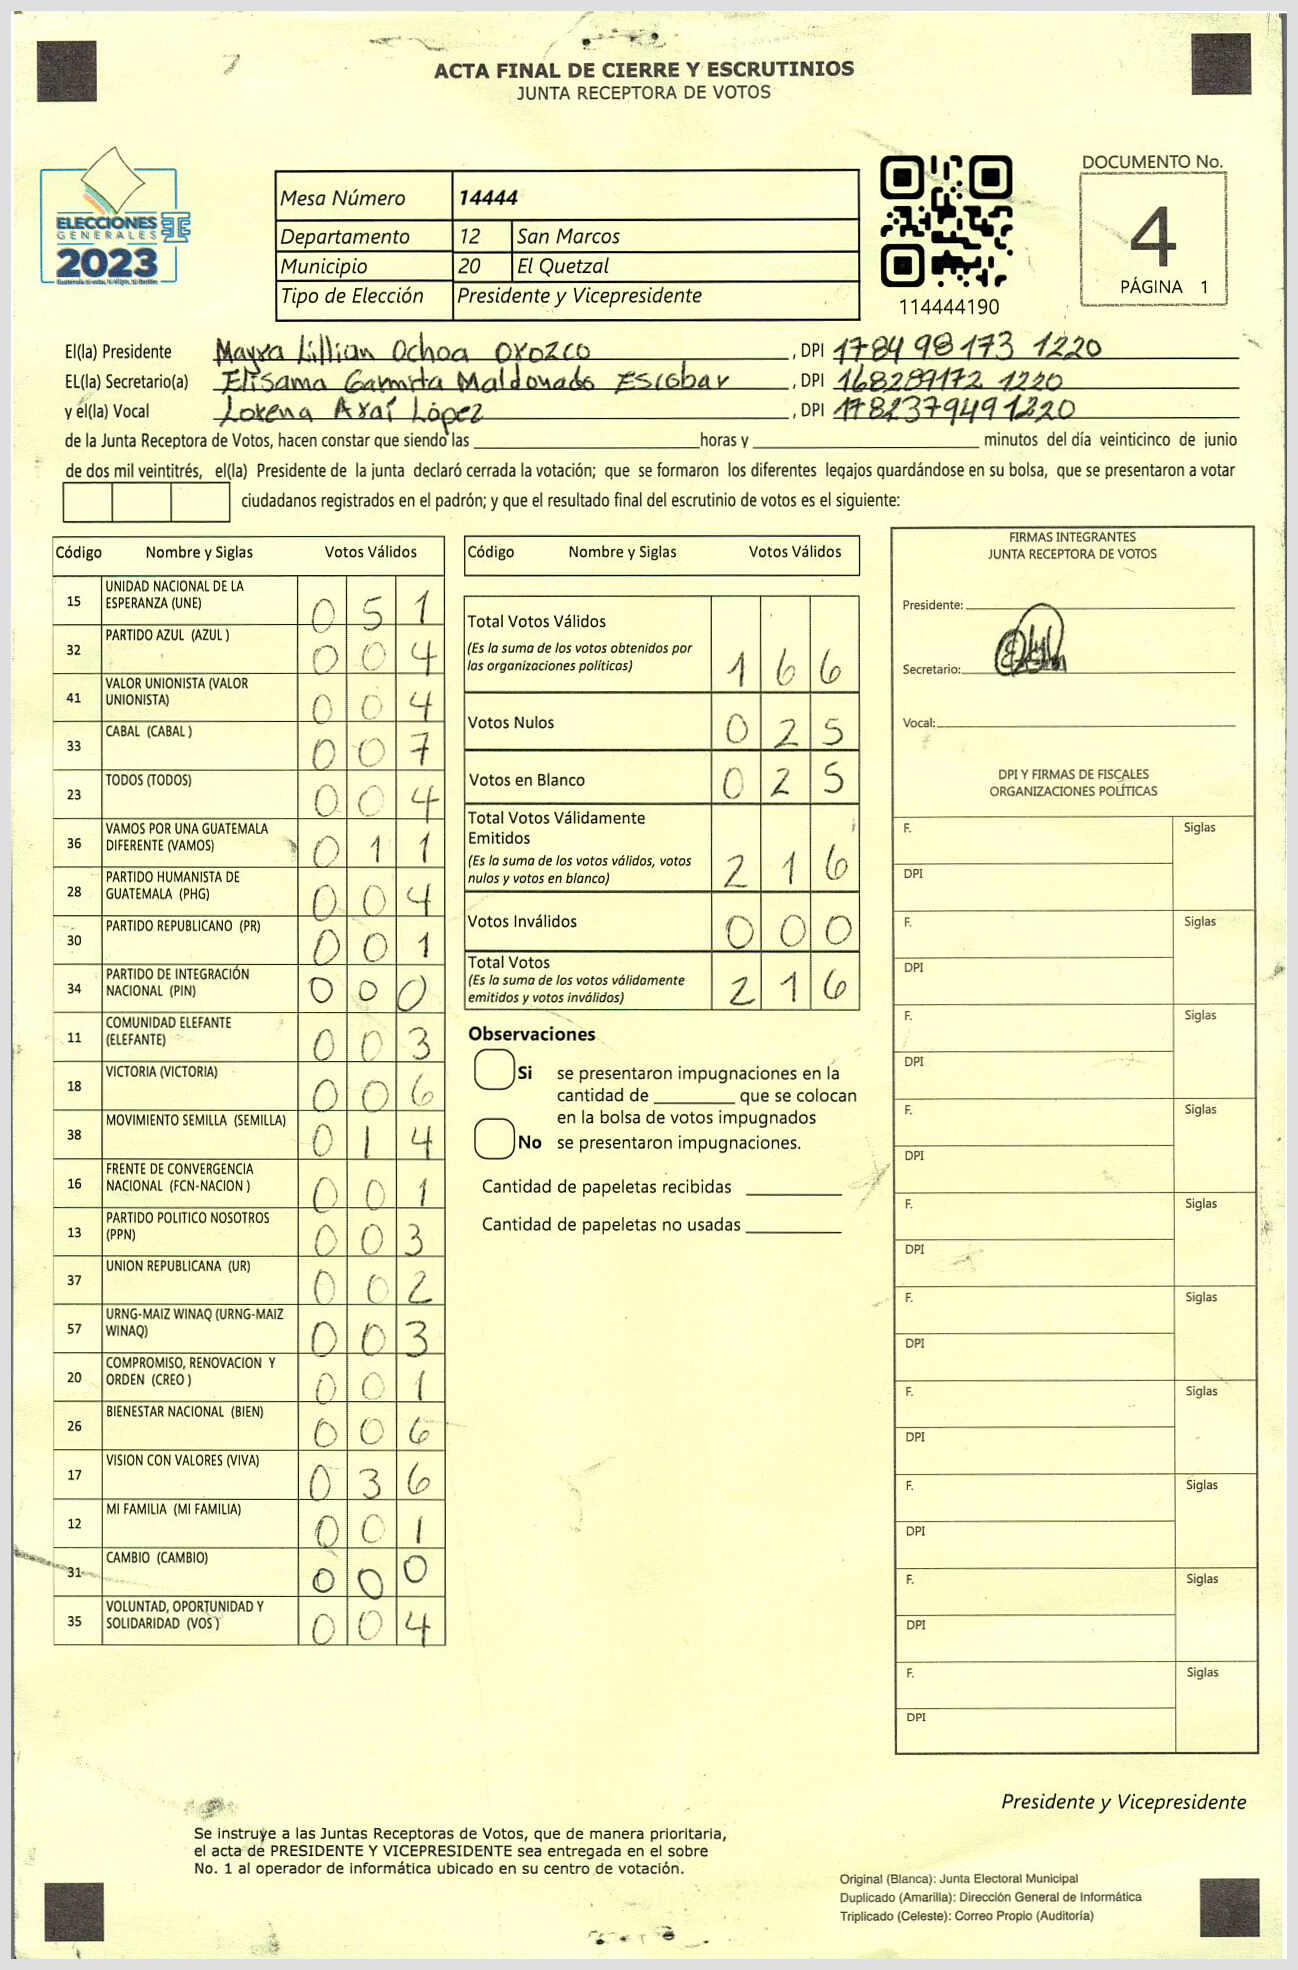 ACTA FINAL DE CIERRE Y ESCRUTINIOS
JUNTA RECEPTORA DE VOTOS
ELECCIONES
GENERALES
2023
Mesa Número 14444
Departamento 12 San Marcos
Municipio 20 El Quetzal
Tipo de Elección Presidente y Vicepresidente
114444190
DOCUMENTO No.
4
PÁGINA 1
El(la) Presidente Mayra Lillian Ochoa Orozco, DPI 1784 98173 1220
EL(la) Secretario(a) Elisama Maldonado Escobar, DPI 168289172 1220
y el(la) Vocal Lorena Araí López, DPI 1782379491220
de la Junta Receptora de Votos, hacen constar que siendo las horas y minutos del día veinticinco de junio
de dos mil veintitrés, el(la) Presidente de la junta declaró cerrada la votación; que se formaron los diferentes legajos quardándose en su bolsa, que se presentaron a votar
ciudadanos registrados en el padrón; y que el resultado final del escrutinio de votos es el siguiente:
Código Nombre y Siglas Votos Válidos
15 UNIDAD NACIONAL DE LA
ESPERANZA (UNE) 0 5 1
32 PARTIDO AZUL (AZUL ) 0 0 4
41 VALOR UNIONISTA (VALOR
UNIONISTA) 0 0 4
33 CABAL (CABAL ) 0 0 7
23 TODOS (TODOS) 0 0 4
36 VAMOS POR UNA GUATEMALA
DIFERENTE (VAMOS) 0 1 1
28 PARTIDO HUMANISTA DE
GUATEMALA (PHG) 0 0 4
30 PARTIDO REPUBLICANO (PR) 0 0 1
34 PARTIDO DE INTEGRACIÓN
NACIONAL (PIN) 0 0 0
11 COMUNIDAD ELEFANTE
(ELEFANTE) 0 0 3
18 VICTORIA (VICTORIA) 0 0 6
38 MOVIMIENTO SEMILLA (SEMILLA) 0 1 4
16 FRENTE DE CONVERGENCIA
NACIONAL (FCN-NACION ) 0 0 1
13 PARTIDO POLITICO NOSOTROS
(PPN) 0 0 3
37 UNION REPUBLICANA (UR) 0 0 2
57 URNG-MAIZ WINAQ (URNG-MAIZ
WINAQ) 0 0 3
20 COMPROMISO, RENOVACION Y
ORDEN (CREO ) 0 0 1
26 BIENESTAR NACIONAL (BIEN) 0 0 6
17 VISION CON VALORES (VIVA) 0 3 6
12 MI FAMILIA (MI FAMILIA) 0 0 1
31 CAMBIO (CAMBIO) 0 0 0
35 VOLUNTAD, OPORTUNIDAD Y
SOLIDARIDAD (VOS ) 0 0 4
Código Nombre y Siglas Votos Válidos
Total Votos Válidos
(Es la suma de los votos obtenidos por
las organizaciones políticas) 1 6 6
Votos Nulos 0 2 5
Votos en Blanco 0 2 5
Total Votos Válidamente
Emitidos
(Es la suma de los votos válidos, votos
nulos y votos en blanco) 2 1 6
Votos Inválidos 0 0 0
Total Votos
(Es la suma de los votos válidamente
emitidos y votos inválidos) 2 1 6
Observaciones
Si se presentaron impugnaciones en la
cantidad de que se colocan
en la bolsa de votos impugnados
No se presentaron impugnaciones.
Cantidad de papeletas recibidas
Cantidad de papeletas no usadas
FIRMAS INTEGRANTES
JUNTA RECEPTORA DE VOTOS
Presidente:
Secretario:
Vocal:
DPI Y FIRMAS DE FISCALES
ORGANIZACIONES POLÍTICAS
F. Siglas
DPI
F. Siglas
DPI
F. Siglas
DPI
F. Siglas
DPI
F. Siglas
DPI
F. Siglas
DPI
F. Siglas
DPI
F. Siglas
DPI
F. Siglas
DPI
F. Siglas
DPI
Presidente y Vicepresidente
Se instruye a las Juntas Receptoras de Votos, que de manera prioritaria,
el acta de PRESIDENTE Y VICEPRESIDENTE sea entregada en el sobre
No. 1 al operador de informática ubicado en su centro de votación.
Original (Blanca): Junta Electoral Municipal
Duplicado (Amarilla): Dirección General de Informática
Triplicado (Celeste): Correo Propio (Auditoría)